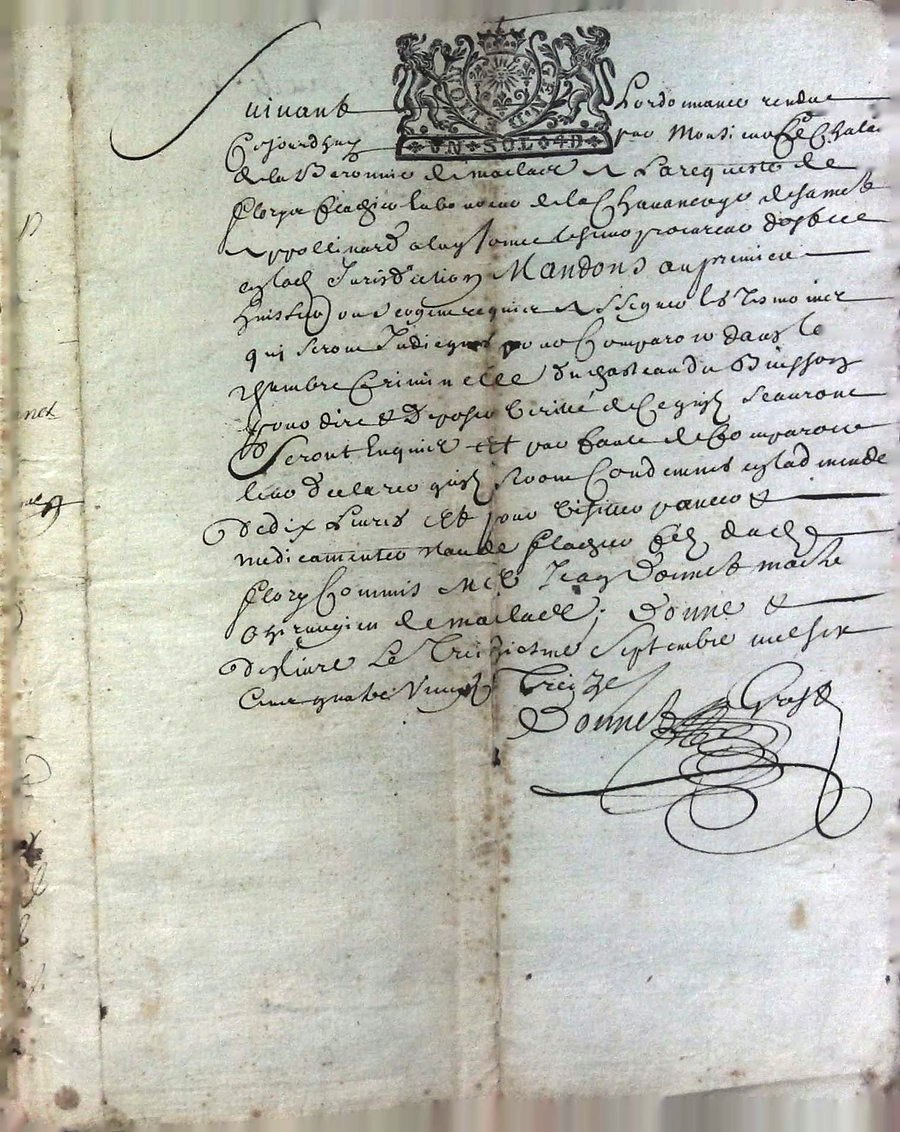 Suivant Lordonnance rendue
Cejourdhuy par Monsieur le Chatel
LYON GEN D
UN SOL 04 D
de la Baronnie de maclas A Larequeste de
Flory laboureur de la Chavanerye de Sainct
Appollinard a luy joinct le sieur procureur doffice
en lad Jurisdiction Mandons au premier
huissier ou sergent requier Assigner les Tesmoins
qui seront Indiqués pour Comparoir dans la
chambre Criminelle du chasteau du Buisson
pour dire & Deposer verité de Ce quils scauront
& seront Enquis Et par faute de Comparoir
leur declarer quils seront Condemnés en lad mende
de dix Livres Et pour visitter pancer &
medicamenter Claude fils dud
Flory Commis Me Jean Donnet maitre
Chirurgien de maclas ; Donné &
deslivré Le Treiziesme Septembre mil six
Cens quatre Vingts Treize
Donnet